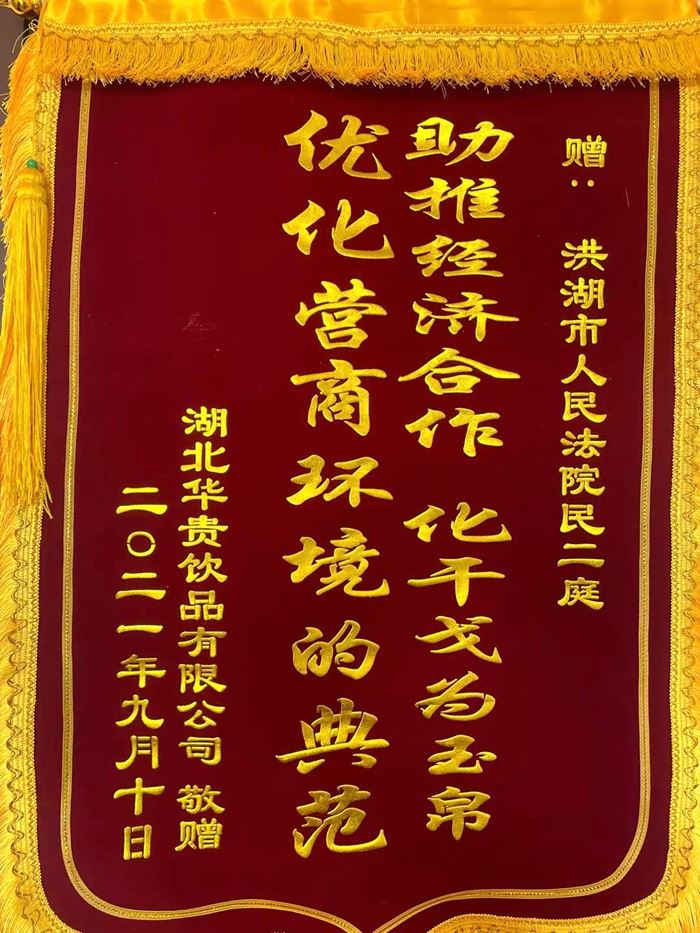 赠：洪湖市人民法院民二庭
助推经济合作 化干戈为玉帛
优化营商环境的典范
湖北华贵饮品有限公司 敬赠
二〇二一年九月十日